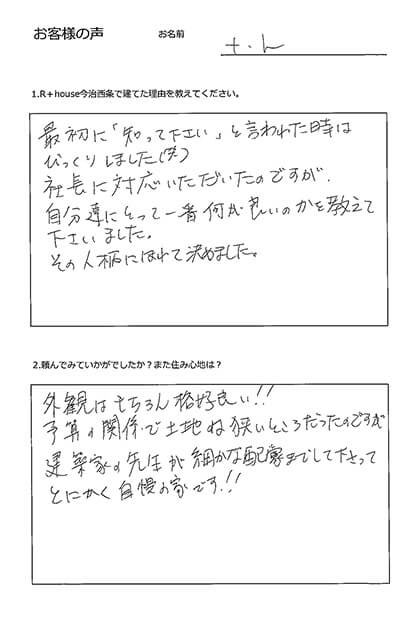 お客様の声 お名前 t.h
1.R+house今治西条で建てた理由を教えてください。
最初に「知って下さい」と言われた時は
びっくりしました(笑)
社長に対応いただいたのですが、
自分達にとって一番何が良いのかを教えて
下さいました。
その人柄にほれて決めました。
2.頼んでみていかがでしたか?また住み心地は?
外観はもちろん格好良い!!
予算の関係で土地は狭いところだったのですが
建築家の先生が細かな配慮までして下さって
とにかく自慢の家です!!